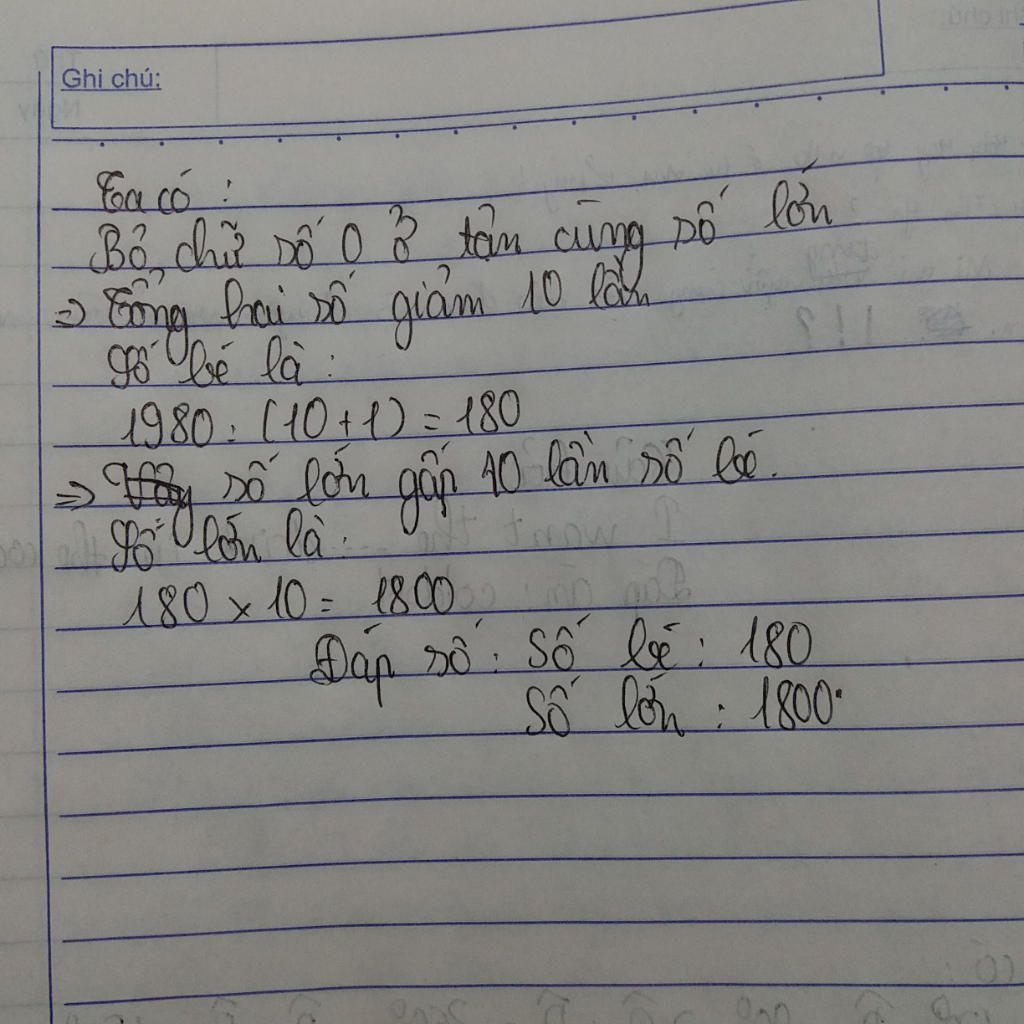 Ghi chú:
Ta có :
Bỏ chữ số 0 ở tận cùng số lớn
=> Tổng hai số giảm 10 lần
Số bé là :
1980 : (10 + 1) = 180
=> số lớn gấp 10 lần số bé.
Số lớn là :
180 x 10 = 1800
Đáp số : Số bé : 180
Số lớn : 1800.